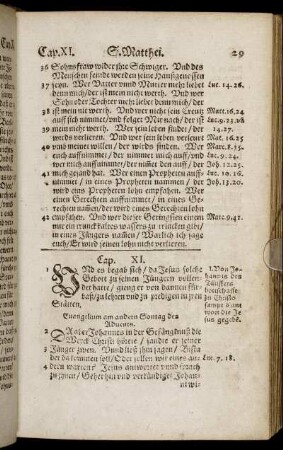 Cap.XI. S. Matthei. 29
36 Sohnsfraw wider jhre Schwiger. Vnd des
Menschen feinde werden seine Haußgenossen
37 seyn. Wer Vatter vnnd Mutter mehr liebet Luc. 14.26.
denn mich/ der ist mein nicht werth. Vnd wer
Sohn oder Tochter mehr liebet denn mich/ der
38 ist mein nicht werth. Vnd wer nicht sein Creutz Matt.16.24
auff sich nimmet/ vnd folget Mir nach/ der ist Luc.9.23.
39 mein nicht werth. Wer sein leben findet/ der 14.27.
wirds verlieren. Vnd wer sein leben verleuret Mat. 16.25
40 vmb meinet willen/ der wirds finden. Wer Marc.8.35.
euch auffnimmet/ der nimmet mich auff/ vnd Luc.9.24.
wer mich auffnimmet/ der nimmet den auff/ der Joh. 12.25.
41 mich gesand hat. Wer einen Propheten auff- Luc.10.16.
nimmet/ in eines Propheten nammen/ der Joh.13.20.
wird eins Propheten lohn empfahen. Wer
einen Gerechten auffnimmet/ in eines Ge-
rechten namen/ der wird eines Gerechten lohn
42 empfahen. Vnd wer dieser Geringsten einen Marc.9.41.
nur mit kaltes wassers zu trincken gibt/
in eines Jüngers namen/ Warlich ich sage
euch/ Er wird seinen lohn nicht verlieren.
Cap. XI.
1 VNd es begab sich/ da Jesus solche 1. Von Jo-
Gebot zu seinen Jüngern vollen-
det hatte/ gieng er von dannen für-
baß/ zu lehren vnd zu predigen in jren
Stätten.
Evangelium am andern Sontag des
Advents.
2 DA aber Johannes in der Gefängnuß die
Werck Christi hörete/ sandte er seiner
3 Jünger zween. Vnd ließ jhm sagen/ Bistu
der da kommen soll/ Oder sollen wir eines an- Luc. 7. 18.
4 dern warten? Jesus antwortet vnd sprach
zu jhnen/ Gehet hin vnd verkündiget Johan-
ni wi-